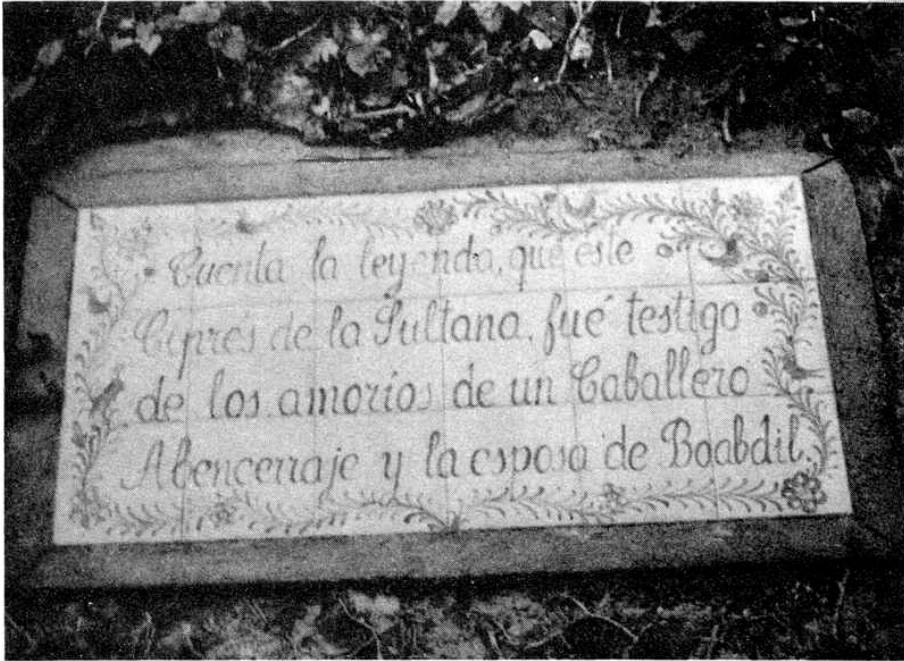 Cuenta la leyenda, que este
Ciprés de la Sultana, fué testigo
de los amoríos de un Caballero
Abencerraje y la esposa de Boabdil.